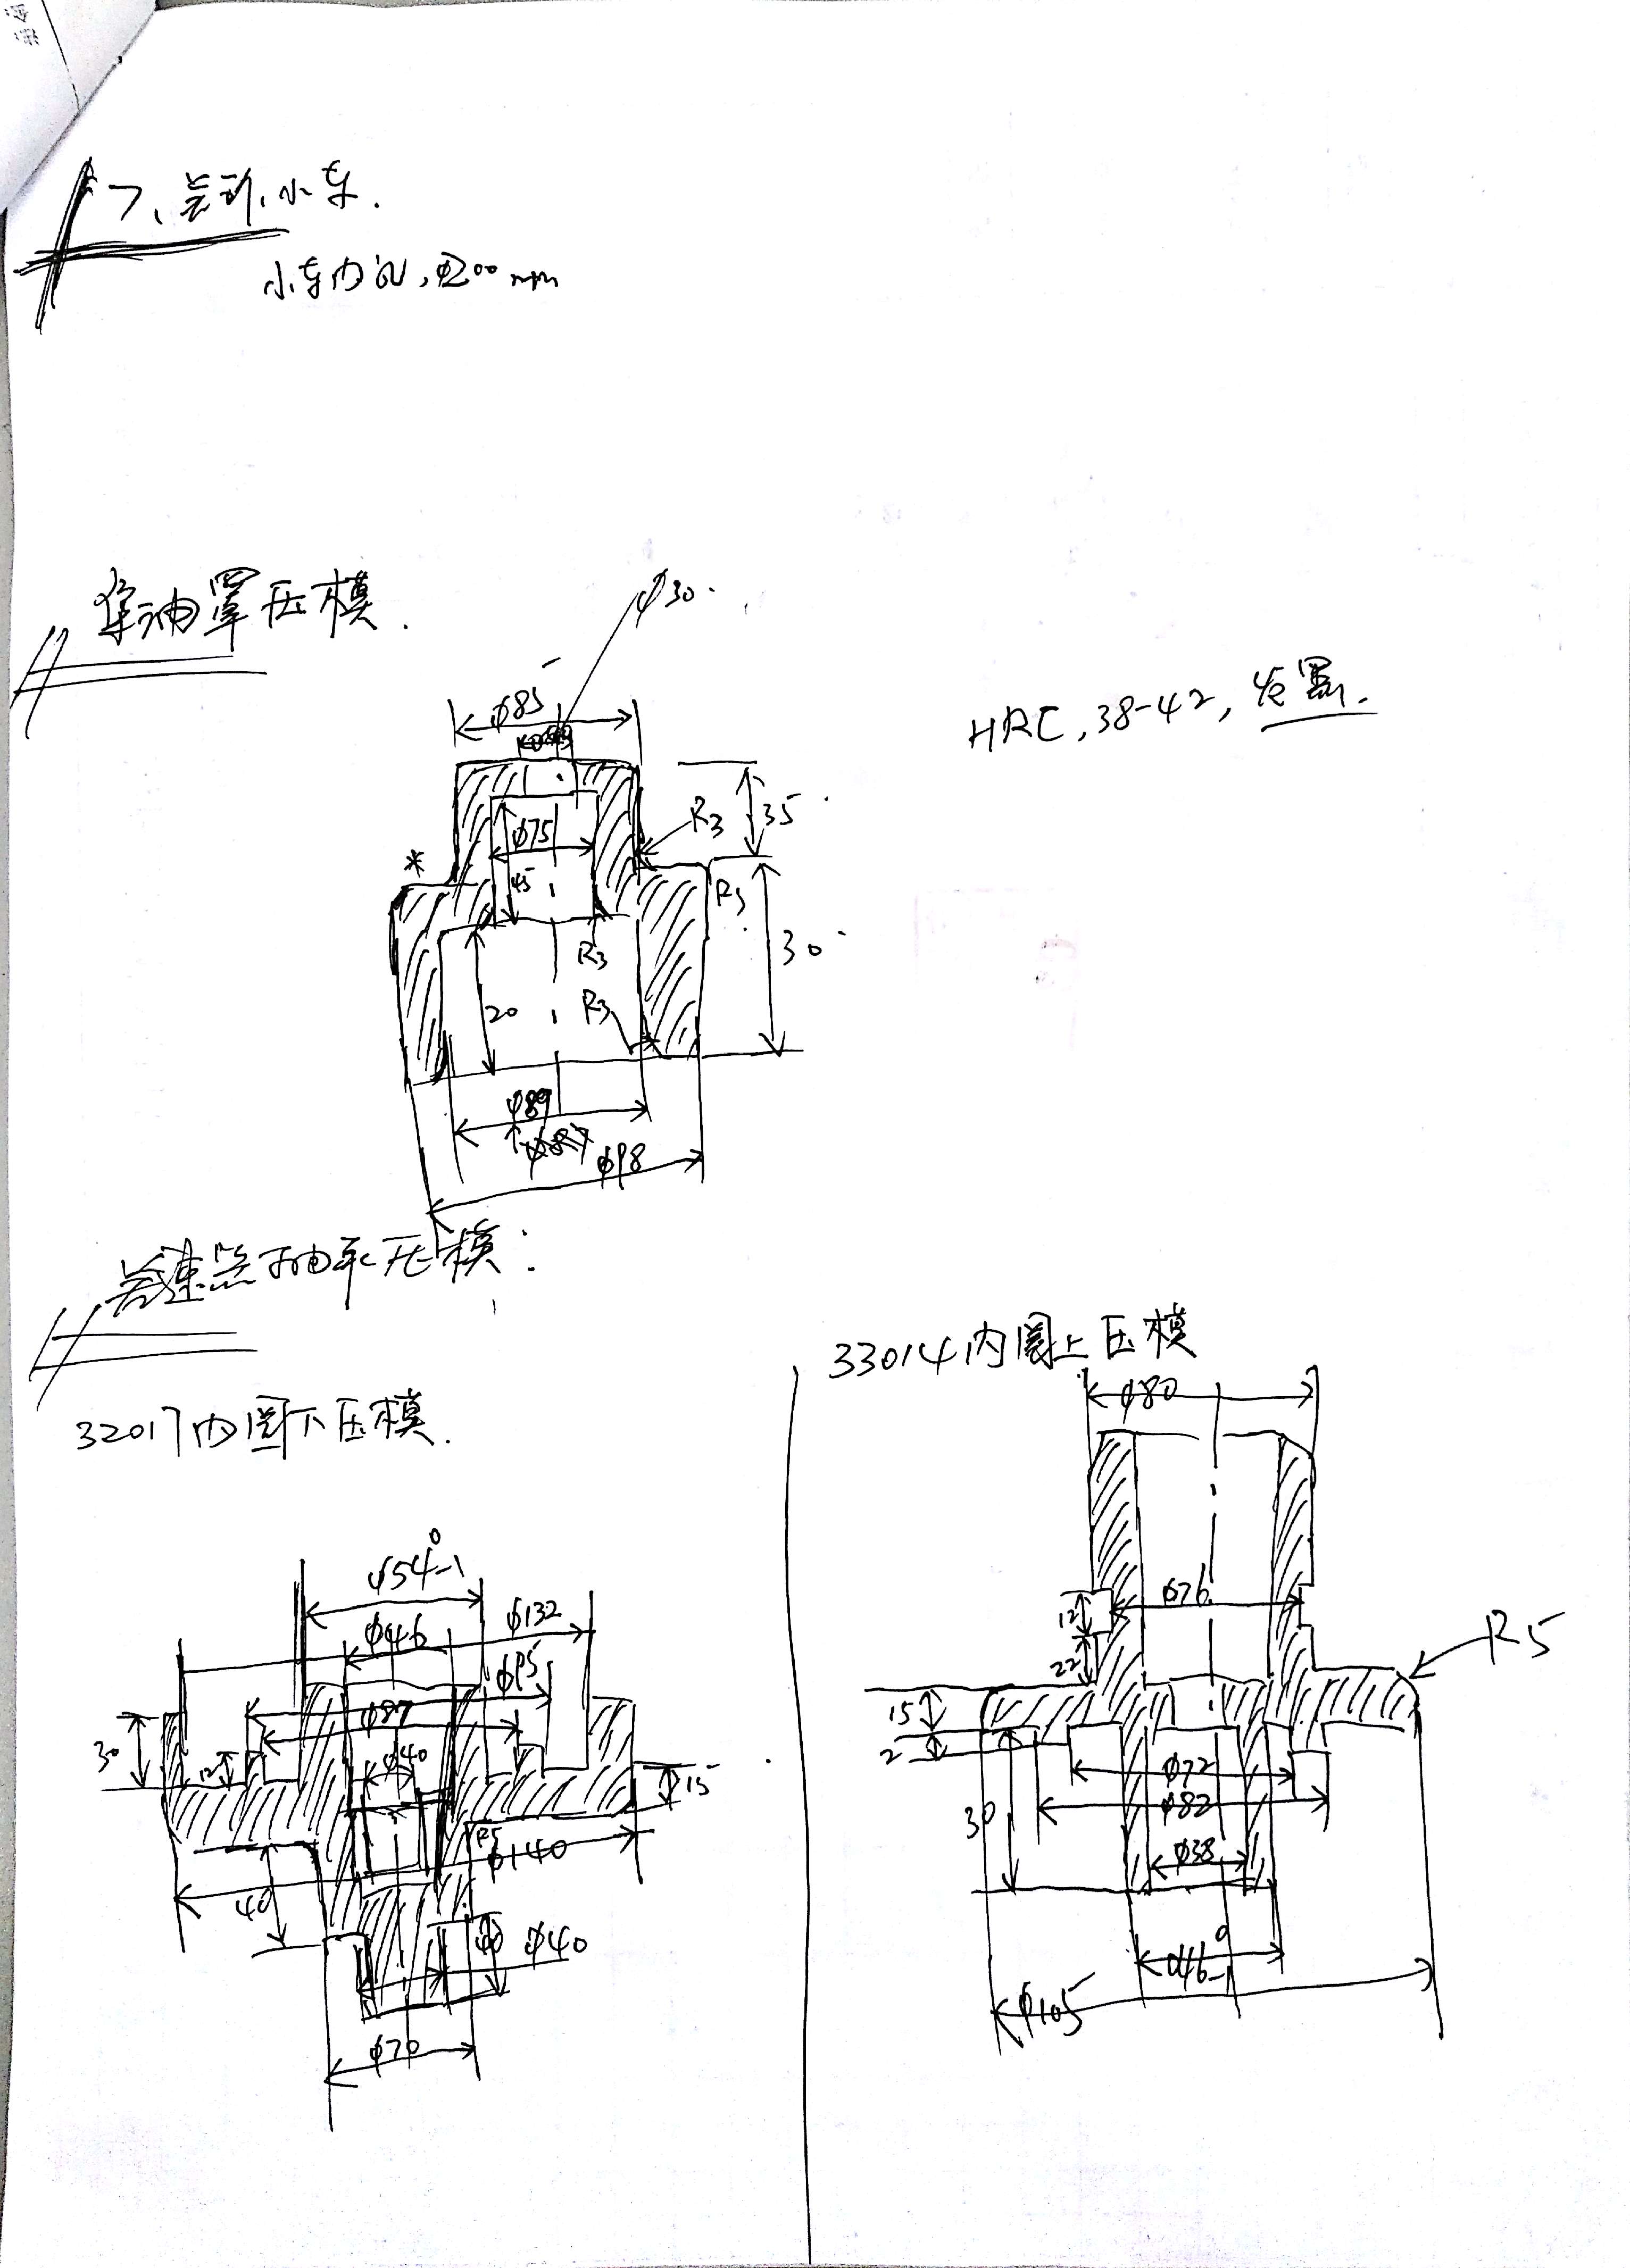 7、差动小车.
小车内心,φ200mm
集油罩压模.
φ30.
φ85
HRC,38-42,发黑.
35
R3
φ75
*
45
R5
30
R3
20
R3
φ89
φ87
φ98
差速器轴承压模:
32017内圈下压模.
φ54 0 -1
φ46
φ132
φ95
φ87
φ40
30
12
15
R5
φ140
40
40
φ40
φ70
33014内圈上压模
φ80
φ76
12
22
R5
15
2
φ72
φ82
30
φ38
φ46 0 -1
φ105